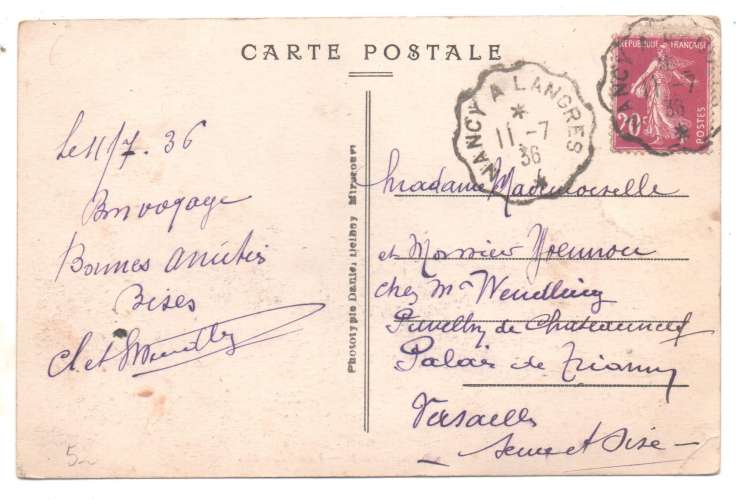 CARTE POSTALE
Le 11/7. 36
Bon voyage
Bonnes amitiés
Bises
Cl et
NANCY A LANGRES
11 -7
36
REPUBLIQUE FRANÇAISE
20c
POSTES
NANCY A
11 -7
36
Phototypie Daniel Delboy Mirecourt
Madame Mademoiselle
et Monsieur
chez Mr Wendling
de Chateauneuf
Palais de Trianon
Versailles
Seine et Oise
5